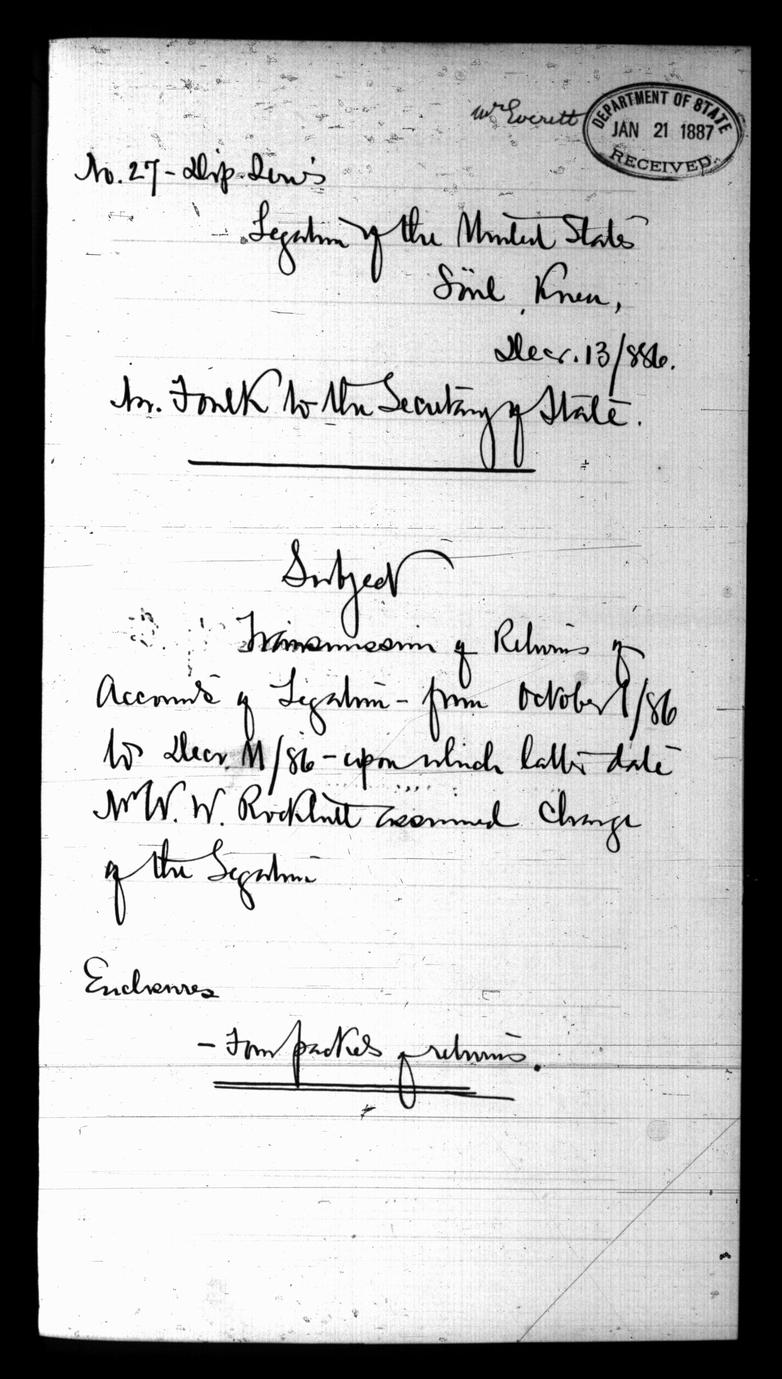 Mr Everett
DEPARTMENT OF STATE
JAN 21 1887
RECEIVED.
No. 27 - Dip. Series
Legation of the United States
Söul, Korea,
Decr. 13/886.
Mr. Foulk to the Secretary of State.
Subject
Transmission of Returns of
Accounts of Legation - from October 1/86
to Decr 11/86 - upon which latter date
Mr W. W. Rockhill assumed Charge
of the Legation
Enclosures
- Four packets of returns.